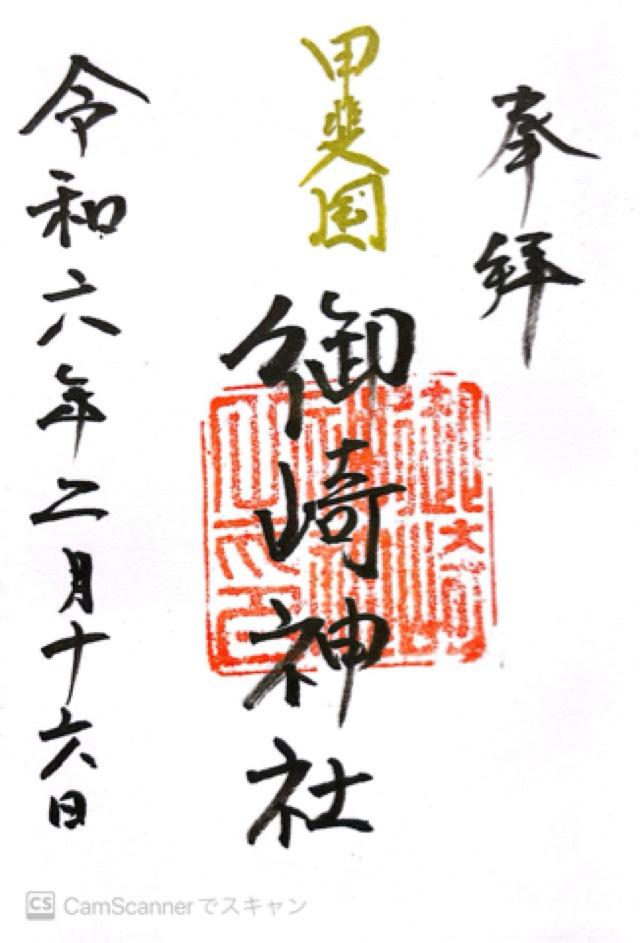 奉拝
甲斐国
御崎神社
令和六年二月十六日
CamScannerでスキャン